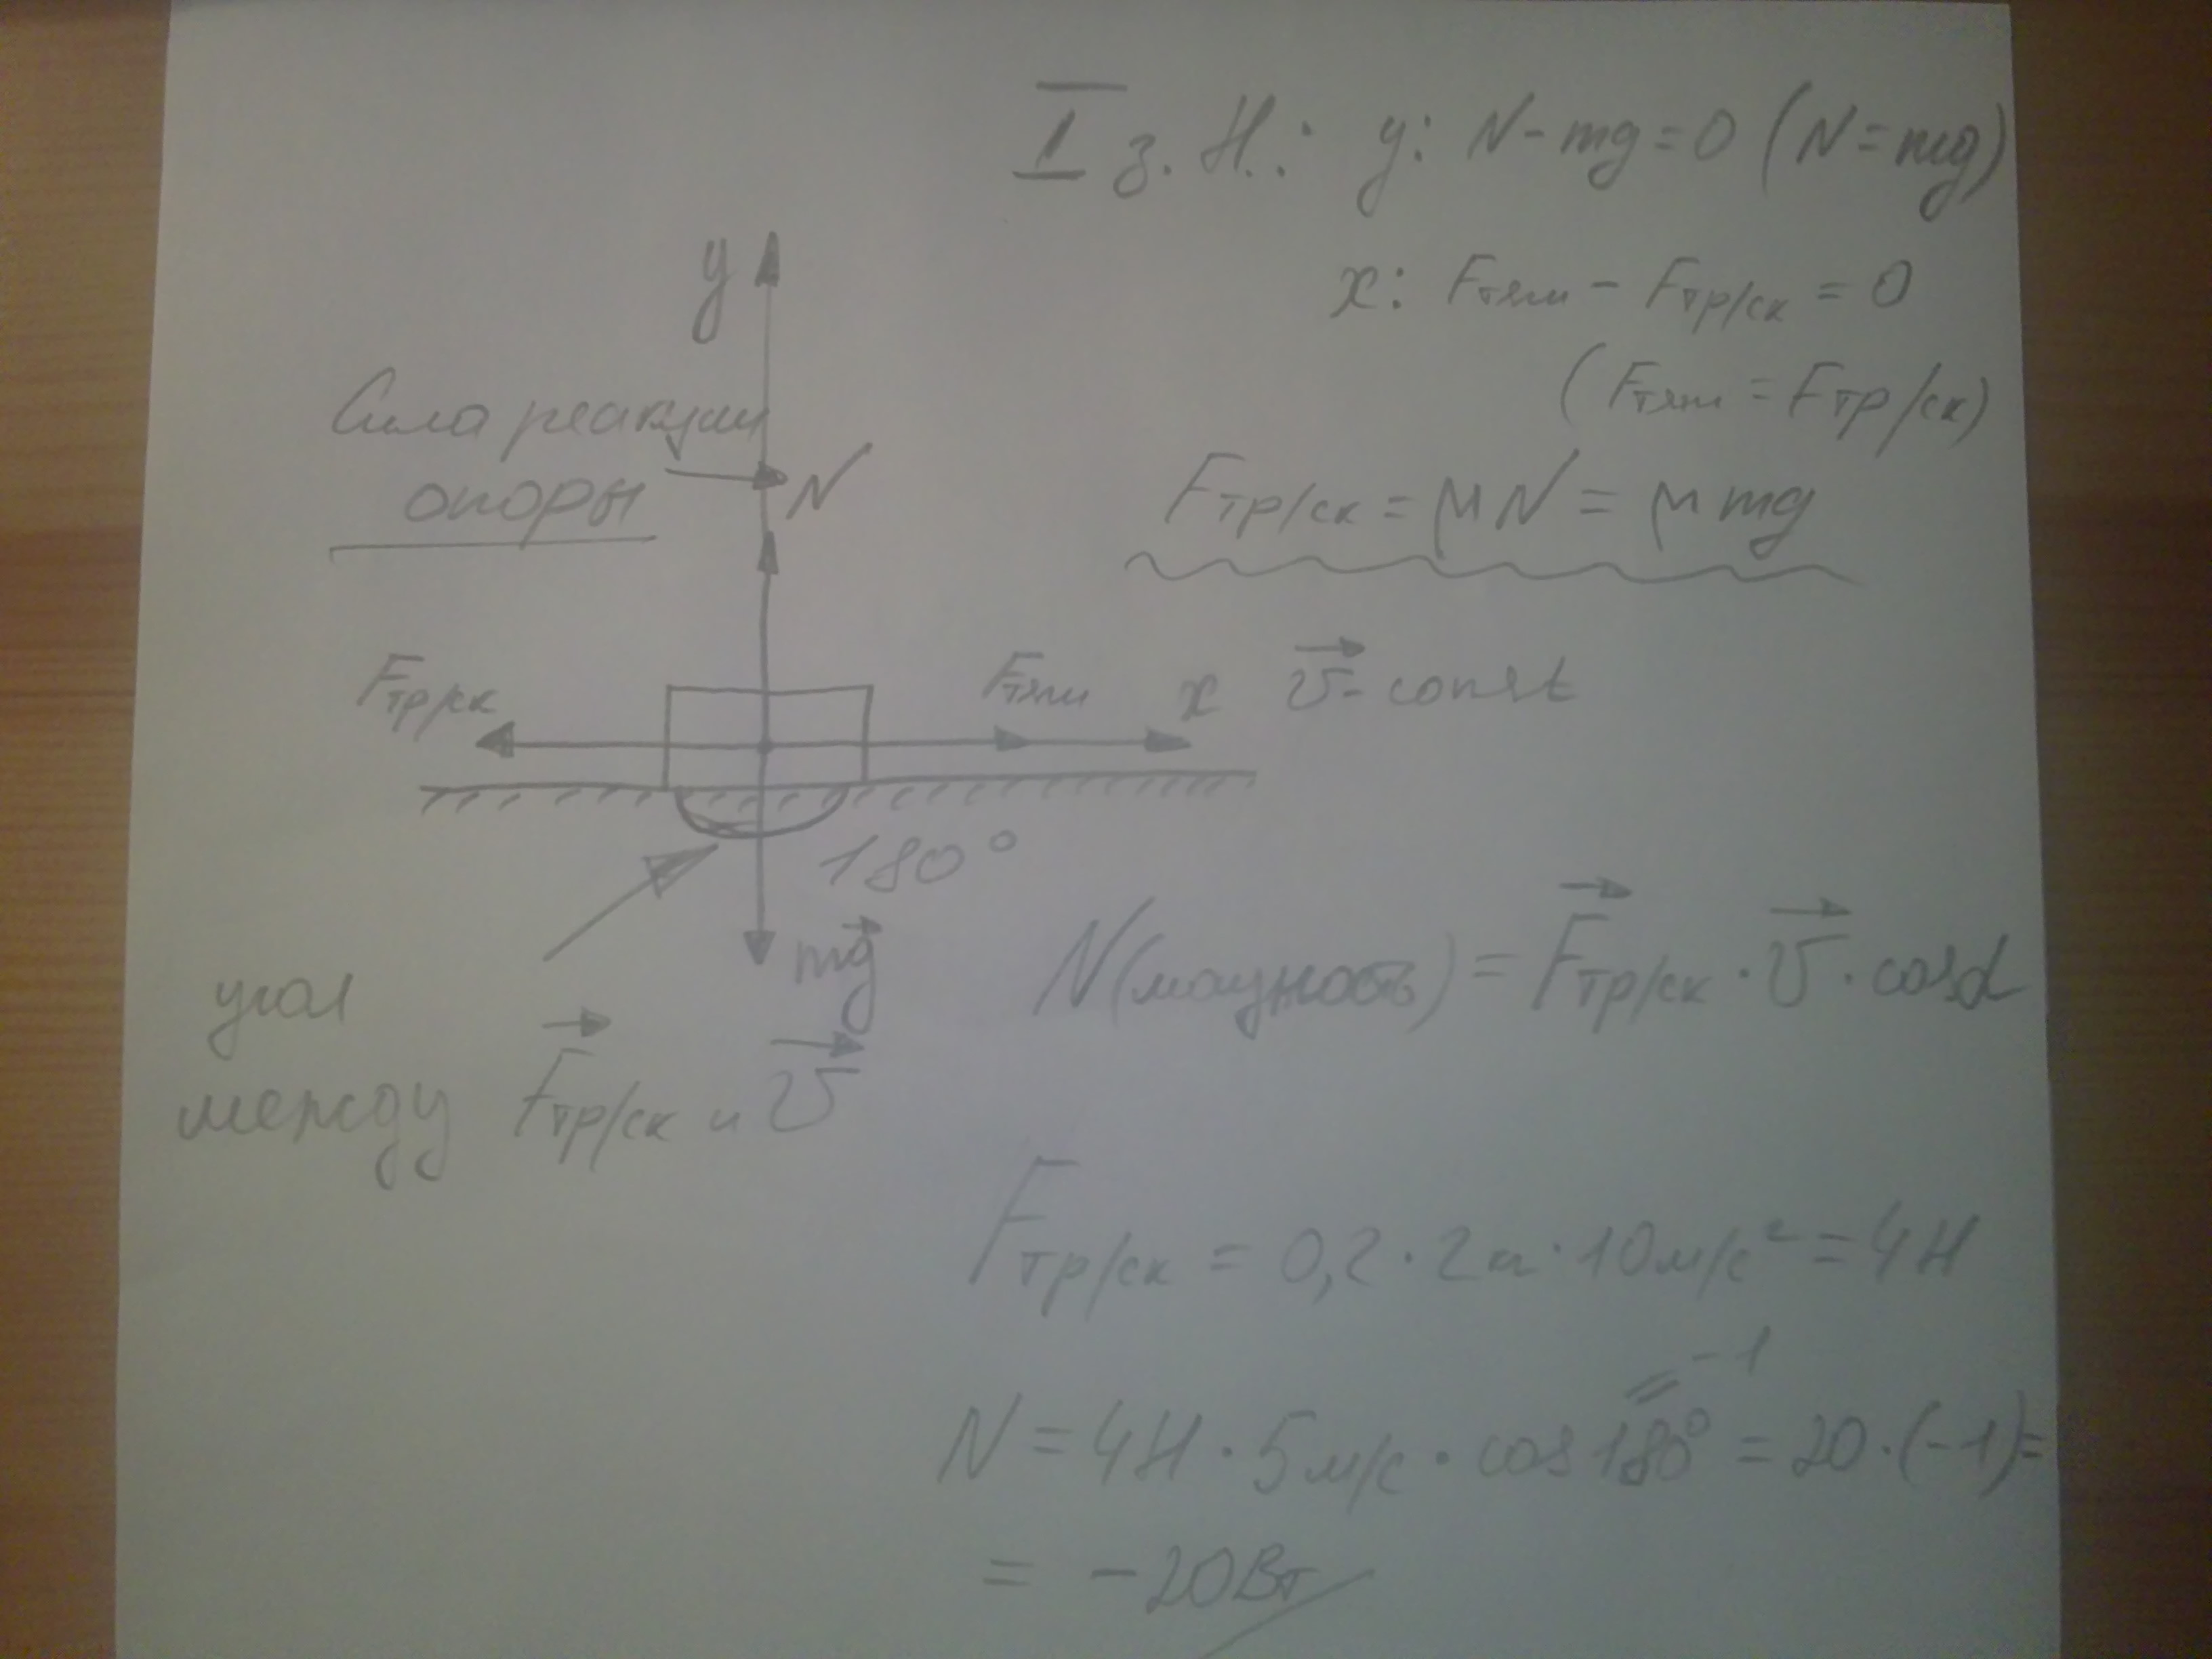 I з. Н.: y: N - mg = 0 (N = mg)
x: Fтяги - Fтр/ск = 0
(Fтяги = Fтр/ск)
Fтр/ск = μN = μmg
y
Сила реакции
опоры
N
Fтр/ск
Fтяги
x
v⃗ - const
180°
mg⃗
угол
между F⃗тр/ск и v⃗
N(мощность) = F⃗тр/ск · v⃗ · cosα
Fтр/ск = 0,2 · 2кг · 10м/с² = 4Н
= -1
N = 4Н · 5м/с · cos180° = 20 · (-1) =
= -20Вт